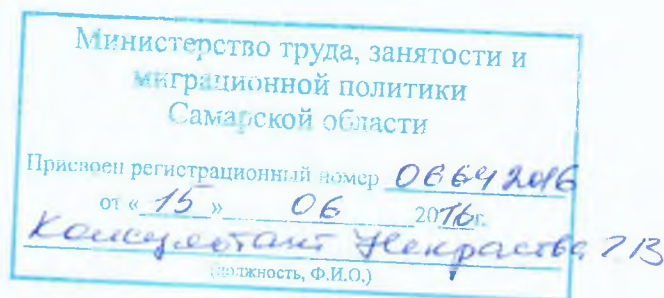 Министерство труда, занятости и
миграционной политики
Самарской области
Присвоен регистрационный номер 06642016
от « 15 » 06 2016г.
Консультант Некрасова
(должность, Ф.И.О.)